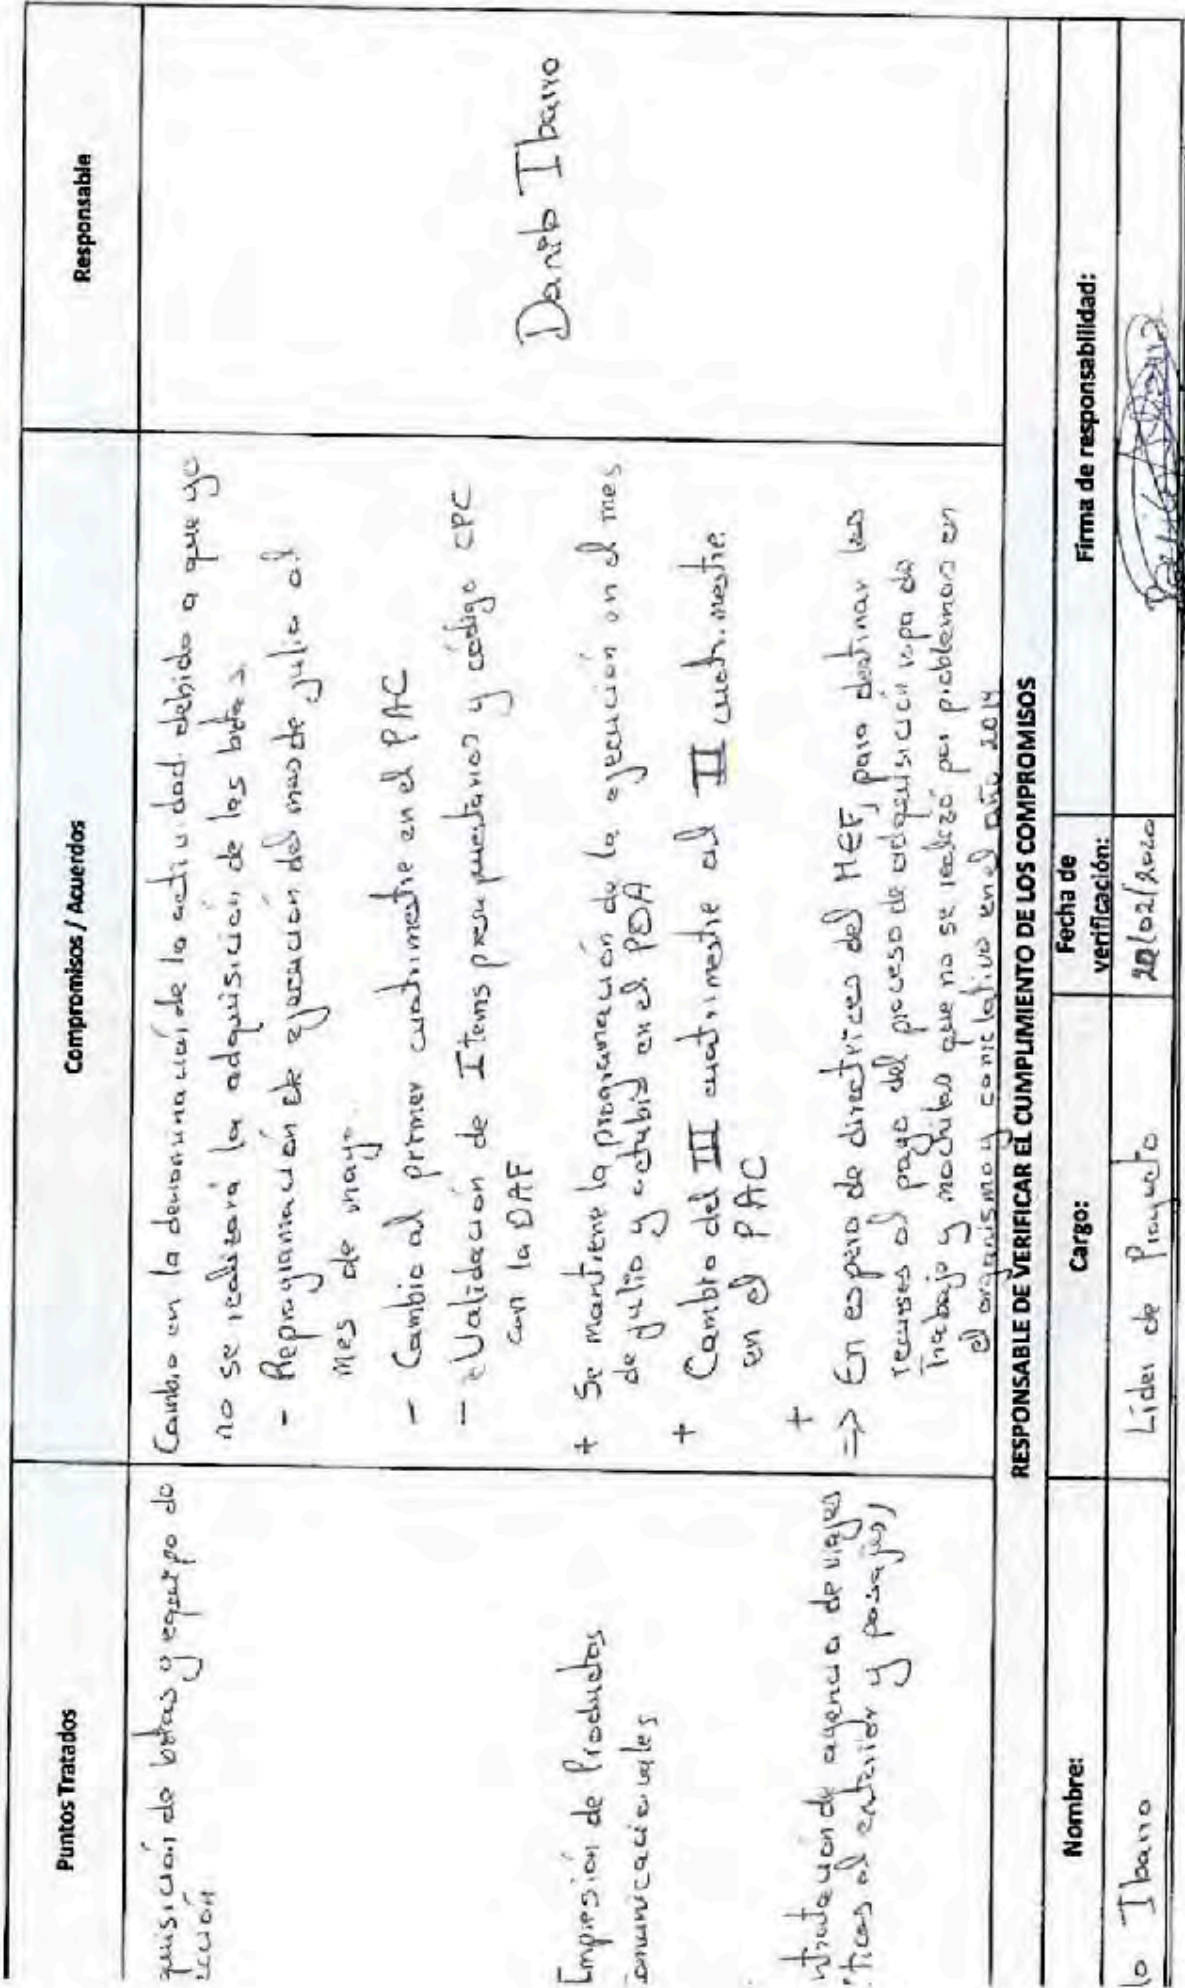 Puntos Tratados
Compromisos / Acuerdos
Responsable
quisición de botas y equipo de
cción
Cambio en la denominación de la actividad debido a que ya
no se realizará la adquisición de las botas.
- Reprogramación de ejecución del mes de julio al
mes de mayo
- Cambio al primer cuatrimestre en el PAC
- Validación de Items presupuestarios y código CPC
con la DAF
Danilo Ibarro
Impresión de Productos
omunicacionales
+ Se mantiene la programación de la ejecución en el mes
de julio y octubre en el POA
+ Cambio del III cuatrimestre al II cuatrimestre
en el PAC
ntratación de agencia de viajes
ticos al exterior y pasajes)
+
=> En espera de directrices del MEF, para destinar los
recursos al pago del proceso de adquisición ropa de
trabajo y mochilas que no se realizó por problemas en
el organismo y conciliativo en el año 2019
RESPONSABLE DE VERIFICAR EL CUMPLIMIENTO DE LOS COMPROMISOS
Nombre:
Cargo:
Fecha de
verificación:
Firma de responsabilidad:
lo Ibarro
Líder de Proyecto
/02/2020